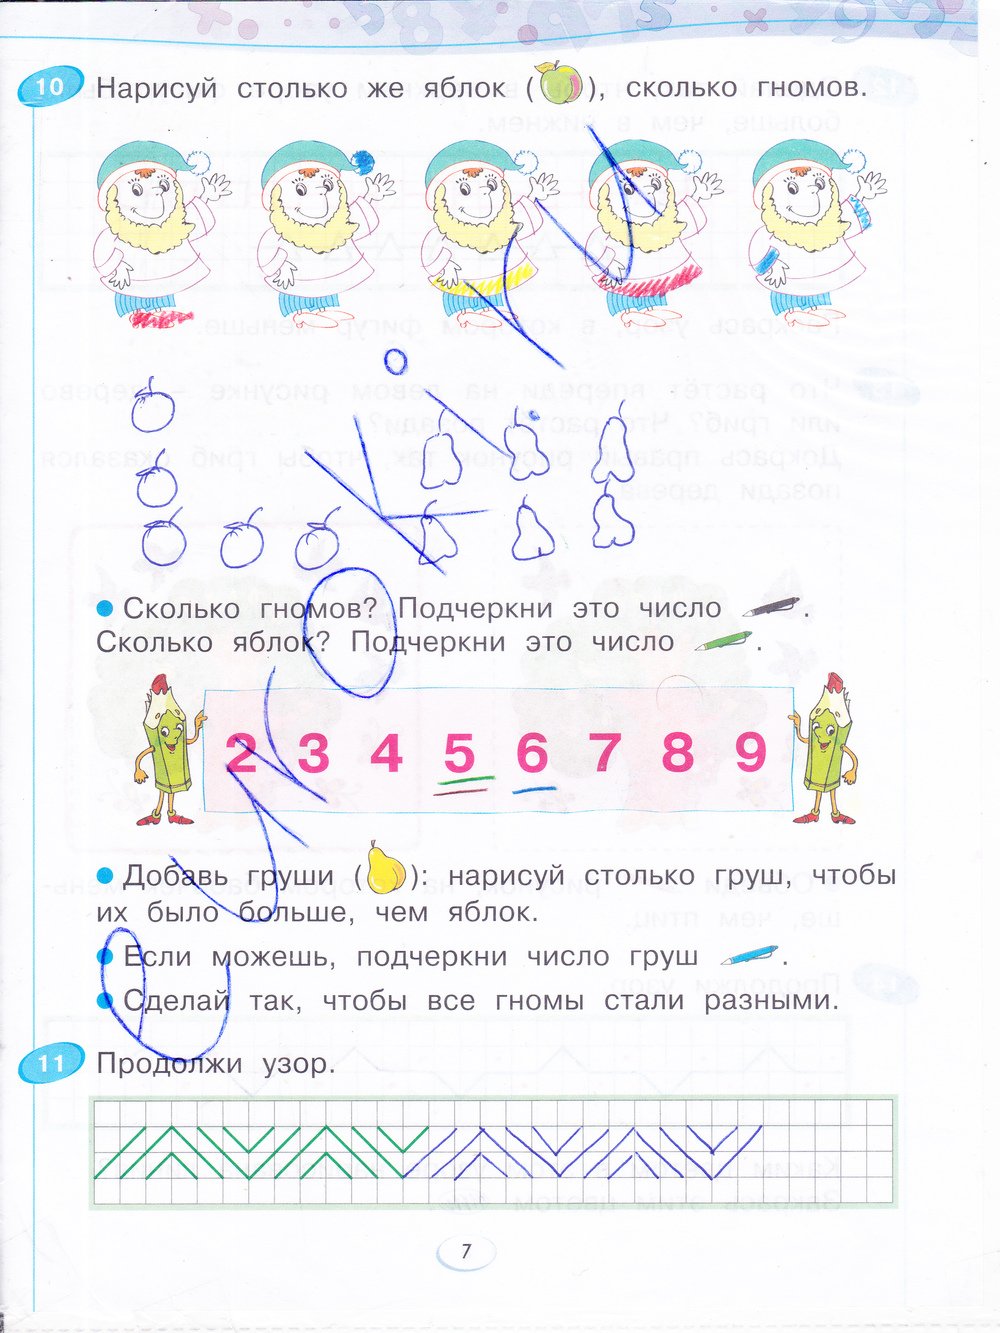 10 Нарисуй столько же яблок ( ), сколько гномов.
Сколько гномов? Подчеркни это число .
Сколько яблок? Подчеркни это число .
2 3 4 5 6 7 8 9
Добавь груши ( ): нарисуй столько груш, чтобы
их было больше, чем яблок.
Если можешь, подчеркни число груш .
Сделай так, чтобы все гномы стали разными.
11 Продолжи узор.
7